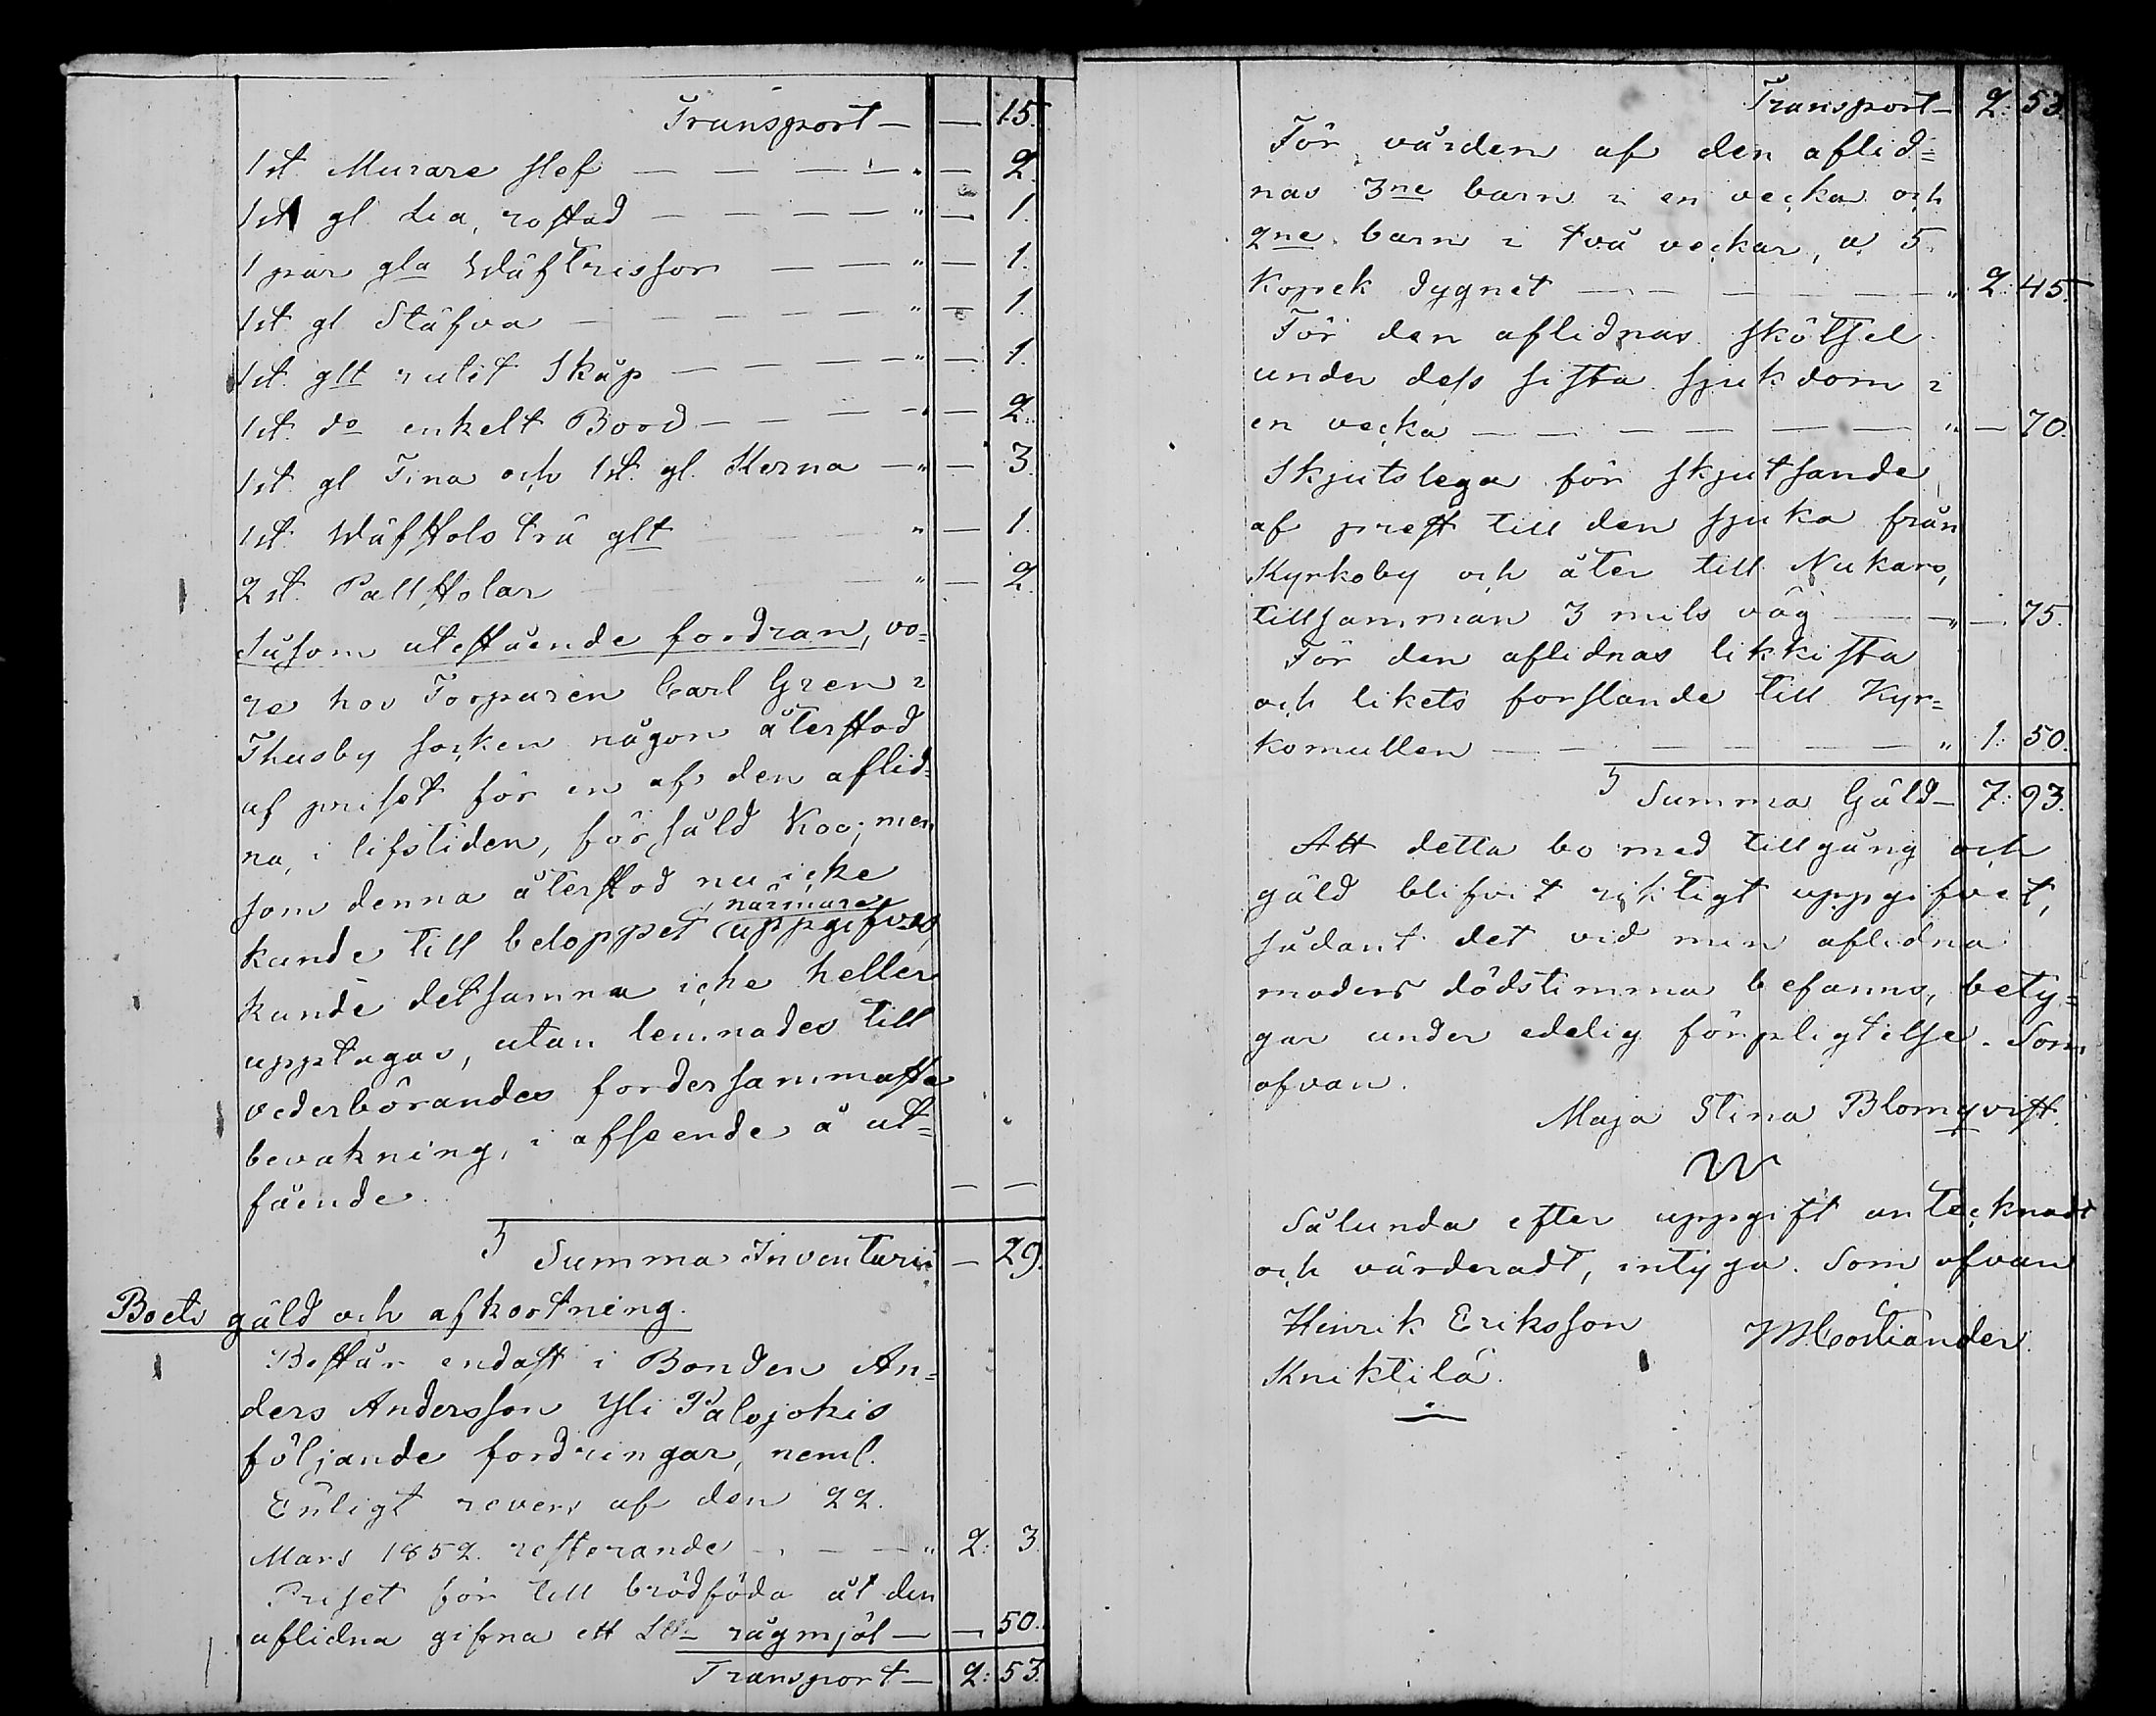 Transport — — 15.
1 st. Murare slef — — — — " — 2.
1 st gl. Lia, rostad — — — — " — 1.
1 par gla Wäftrissor — — " — 1.
1 st. gl Stäfva — — — — — " — 1.
1 st. glt rulit Skåp — — — — " — 1.
1 st. do enkelt Bord — — — — " — 2.
1 st. gl Tina och 1 st. gl. Kerna — " — 3.
1 st. Wäfstols trä glt " — 1.
2 st. Pallstolar " — 2.
Såsom utestående fordran, vo=
re hos Torparen Carl Gren i
Thusby socken någon återstod
af priset för en af den aflid=
na, i lifstiden, försåld Koo; men
som denna återstod nu icke
kunde till beloppet närmare uppgifvas,
kunde detsamma icke heller
upptagas, utan lemnades till
vederbörandes fordersammaste
bevakning, i afseende å ut=
fående. — —
Summa Inventarii — 29.
Boets gäld och afkortning.
Består endast i Bonden An=
ders Andersson Yli Palojokis
följande fordringar, neml.
Enligt revers af den 22.
Mars 1852. resterande — — — " 2: 3.
Priset för till brödföda åt den
aflidna gifna ett L℔ rågmjöl — — 50.
Transport — 2: 53.
Transport — 2: 53.
För vården af den aflid=
nas 3ne barn i en vecka och
2ne barn i två veckor, a 5.
Kopek dygnet — — — — — " 2: 45.
För den aflidnas skötsel
under dess sista sjukdom i
en vecka — — — — — — " — 70.
Skjutslega för skjutsande
af prest till den sjuka från
Kyrkoby och åter till Nukars,
tillsamman 3 mils väg — " — 75.
För den aflidnas likkista
och likets forslande till Kyr=
komullen — — — — — — " 1: 50.
Summa Gäld — 7: 93.
Att detta bo med tillgång och
gäld blifvit riktigt uppgifvet,
sådant det vid min aflidna
moders dödstimma befanns, bety=
gar under edelig förpligtelse. Som
ofvan.
Maja Stina Blomqvist.
Sålunda efter uppgift antecknadt
och värderadt, intyga. Som ofvan
Henrik Eriksson
Kniktilä.